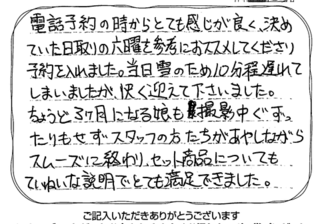 電話予約の時からとても感じが良く、決め
ていた日取りの六曜を参考におススメしてくださり
予約を入れました。当日雪のため10分程遅れて
しまいましたが、快く迎えて下さいました。
ちょうど3ヶ月になる娘も撮影中ぐずっ
たりもせずスタッフの方たちがあやしながら
スムーズに終わり、セット商品についても
ていねいな説明でとても満足できました。
ご記入いただきありがとうございます